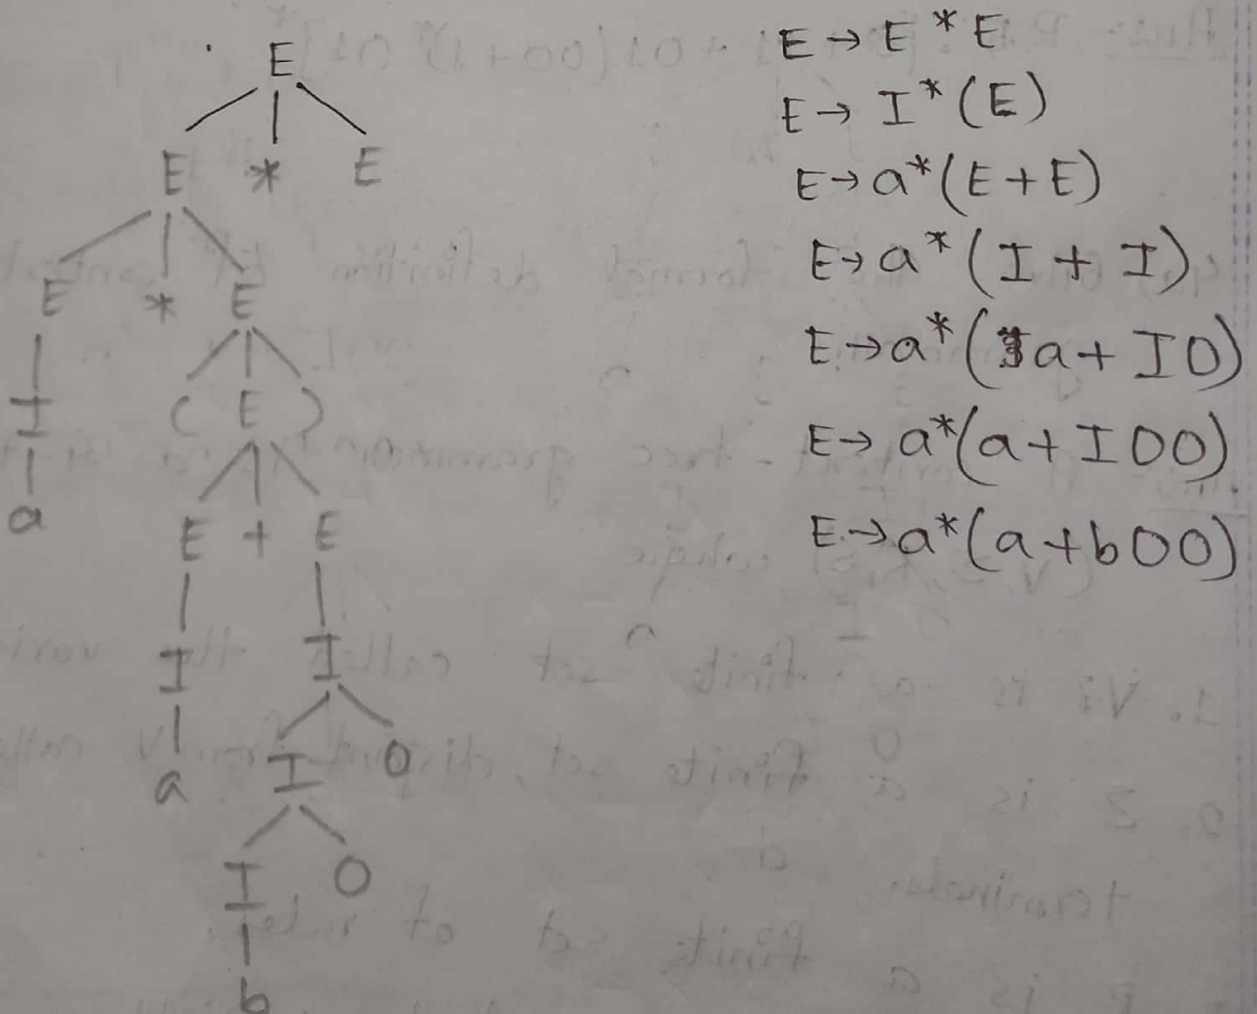 E
E * E
E * E
I ( E )
a E + E
I I
a I 0
I 0
b
E → E * E
E → I * (E)
E → a * (E + E)
E → a * (I + I)
E → a * (a + I0)
E → a * (a + I00)
E → a * (a + b00)